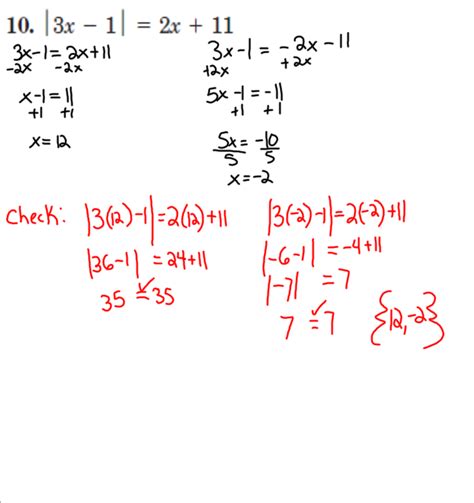 10. |3x − 1| = 2x + 11
3x-1=2x+11
-2x -2x
x-1=11
+1 +1
x=12
3x-1=-2x-11
+2x +2x
5x-1=-11
+1 +1
5x=-10
5 5
x=-2
Check: |3(12)-1|=2(12)+11
|36-1|=24+11
35=35 ✓
|3(-2)-1|=2(-2)+11
|-6-1|=-4+11
|-7|=7
7=7 ✓
{12,-2}